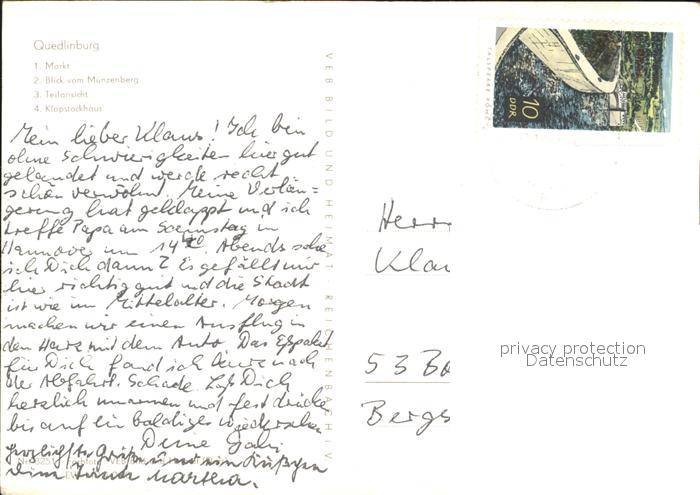 Quedlinburg
1. Markt
2. Blick vom Münzenberg
3. Teilansicht
4. Klopstockhaus
Mein lieber Klaus! Ich bin
ohne Schwierigkeiten hier gut
gelandet und werde recht
schön verwöhnt. Meine Verlän=
gerung hat geklappt und ich
treffe Papa am Samstag in
Hannover um 14 Abends sehe
ich Dich dann? Es gefällt mir
hier richtig gut und die Stadt
ist wie im Mittelalter. Morgen
machen wir einen Ausflug in
den Harz mit dem Auto. Das Eßpaket
für Dich fand ich kurz nach
der Abfahrt. Schade. Laß Dich
herzlich umarmen und fest drücken
bis auf ein baldiges Wiedersehen
Deine Gabi
herzlichste Grüße und ein Küßchen
Martha.
VEB BILD UND HEIMAT · REICHENBACH I. V.
TALSPERRE
10
DDR
Herr
Klau
53 Bo
Bergs
privacy protection
Datenschutz